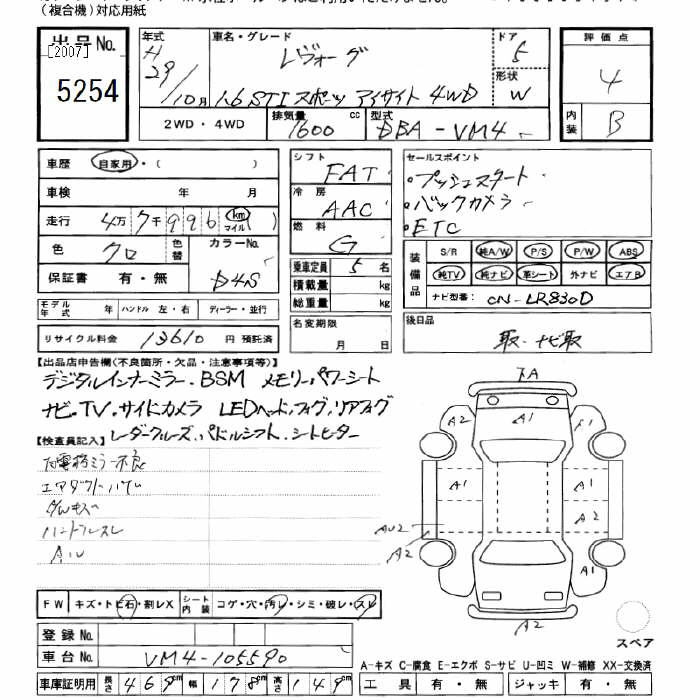 (複合機)対応用紙
出品No. [2007] 5254
年式 H29/10月
車名・グレード レヴォーグ
1.6 STI スポーツ アイサイト 4WD
ドア 5
形状 W
評価点 4
内装 B
2WD・4WD
排気量 1600 cc
型式 DBA-VM4
車歴 自家用・( )
車検 年 月
走行 4万7千996 km マイル( )
色 クロ 色替 カラーNo. D4S
保証書 有・無
モデル年式 年 ハンドル 左・右 ディーラー・並行
リサイクル料金 13610 円 預託済
シフト FAT
冷房 AAC
燃料 G
乗車定員 5 名
積載量 kg
総重量 kg
名変期限 月 日
セールスポイント
・プッシュスタート
・バックカメラ
・ETC
装備品 S/R 純A/W P/S P/W ABS
純TV 純ナビ 革シート 外ナビ エアB
ナビ型番: CN-LR830D
後日品
取・ナビ取
【出品店申告欄(不良箇所・欠品・注意事項等)】
デジタルインナーミラー・BSM メモリーパワーシート
ナビ・TV・サイドカメラ LEDヘッド,フォグ,リアフォグ
レーダークルーズ,パドルシフト,シートヒーター
【検査員記入】
ハンドルスレ
下A
A2 A1 A1
A1 A1
A2
AU2
A2
A1
A2
スペア
FW キズ・トビ石・割レX シート内装 コゲ・穴・汚レ・シミ・破レ・スレ
登録No.
車台No. VM4-105590
車庫証明用 長さ 469cm 幅 178cm 高さ 149cm
A-キズ C-腐食 E-エクボ S-サビ U-凹ミ W-補修 XX-交換済
工具 有・無 ジャッキ 有・無